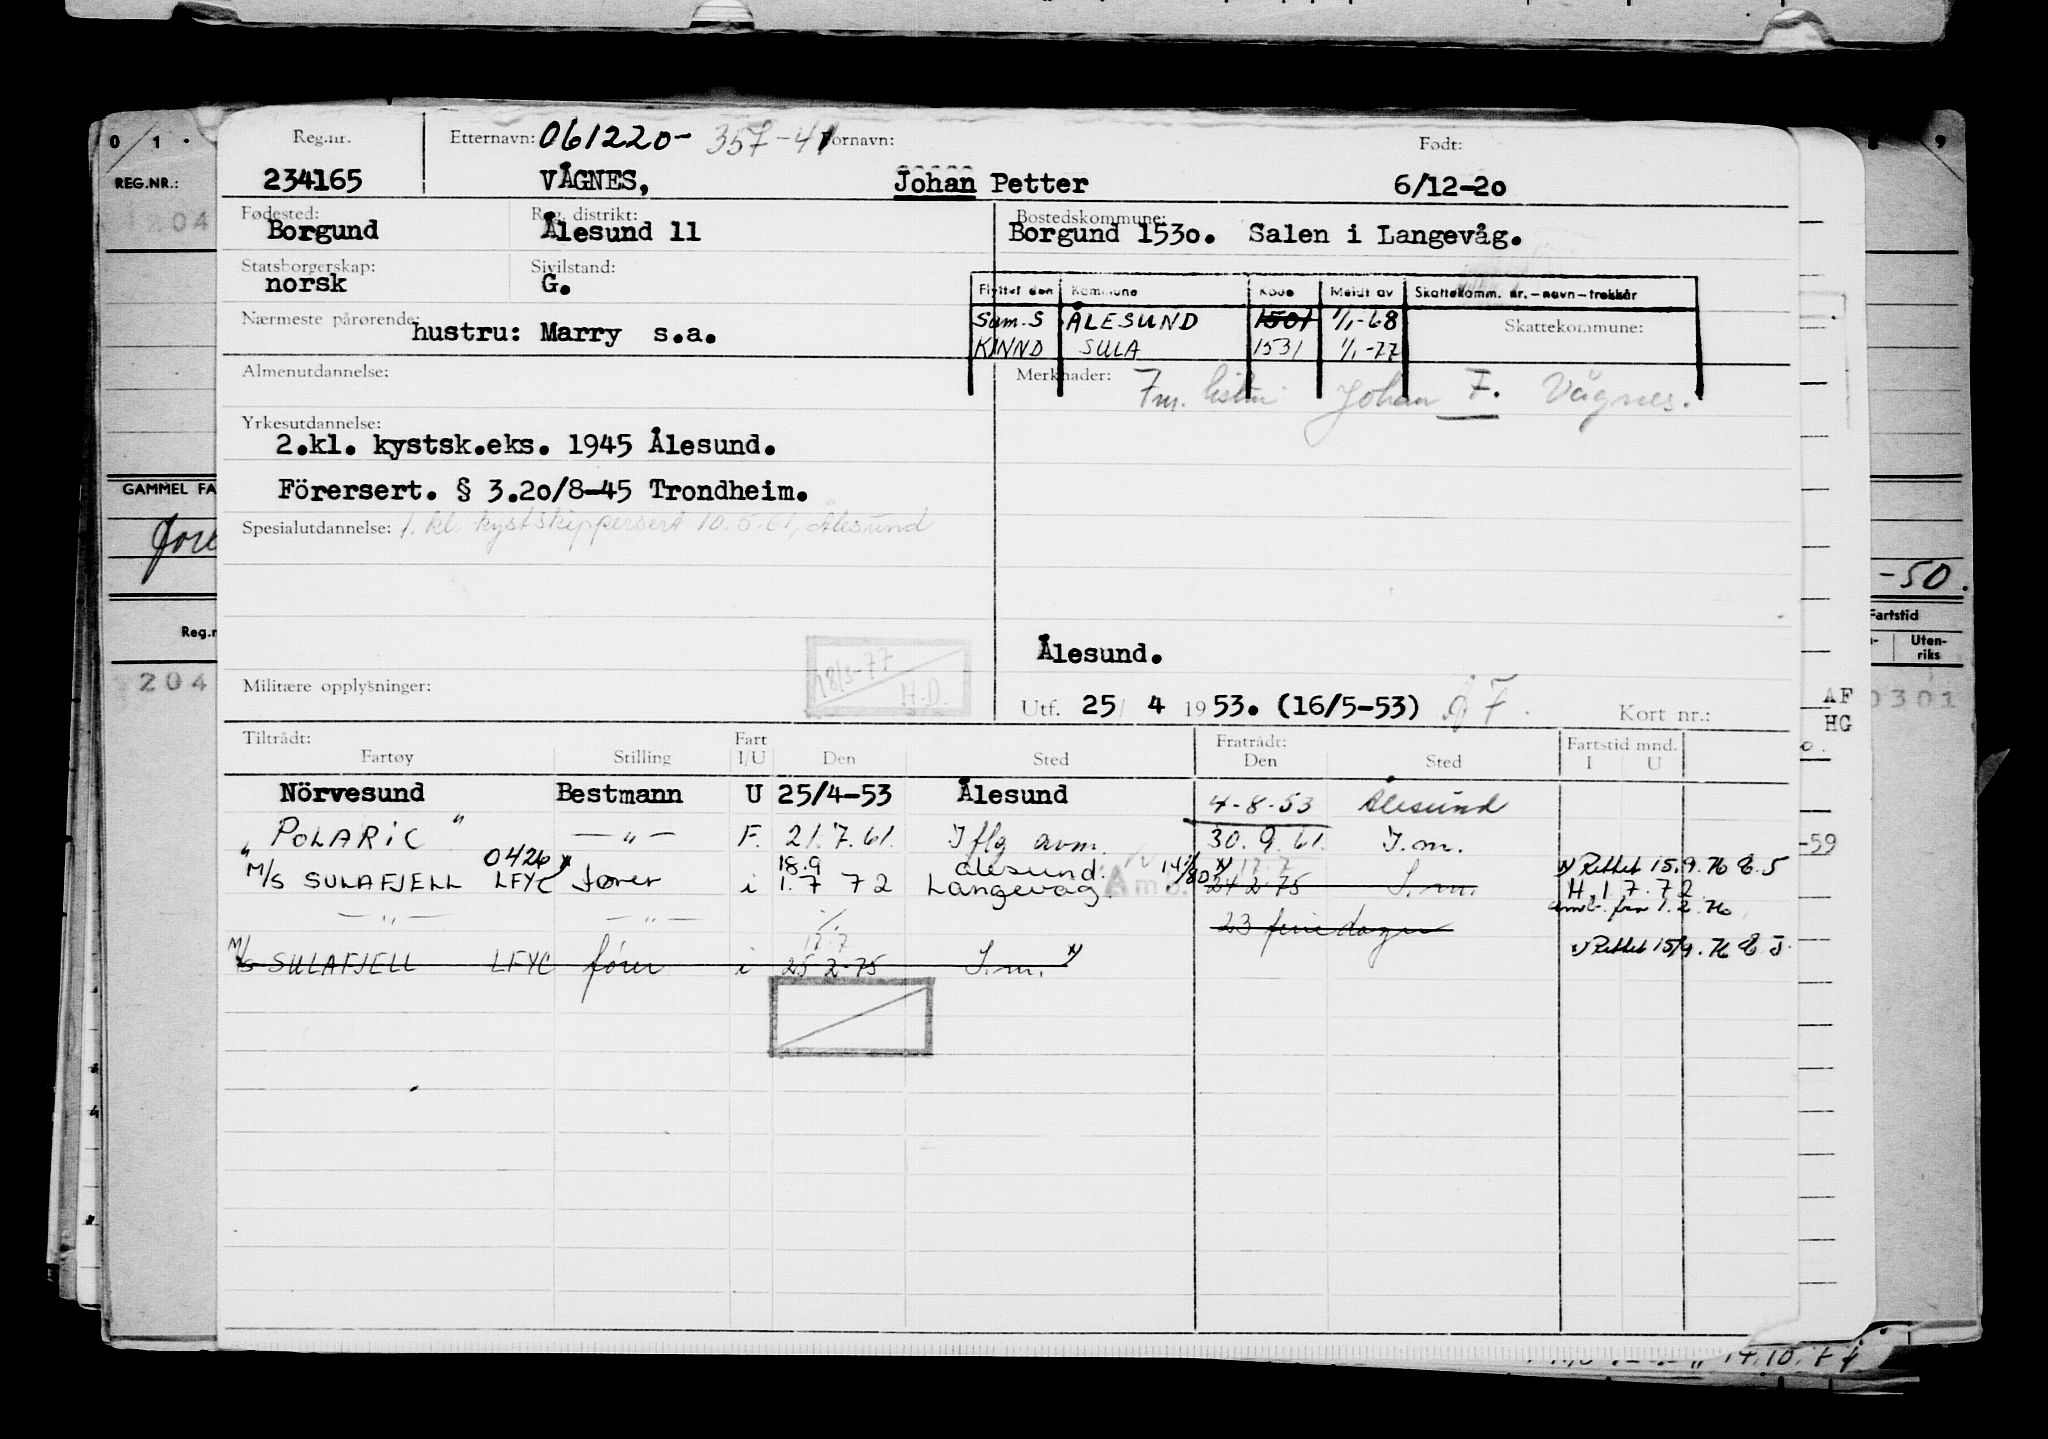 Reg.nr. Etternavn: 061220- 357-41 Fornavn: Født:
234165 VÅGNES, Johan Petter 6/12-20
Fødested: Reg. distrikt: Bostedskommune:
Borgund Ålesund 11 Borgund 1530. Salen i Langevåg.
Statsborgerskap: Sivilstand:
norsk G.
Flyttet den Kommune Kode Meldt av Skattekomm. nr.-navn-trekkår
Sam.S ÅLESUND 1501 1/1-68 Skattekommune:
KINND SULA 1531 1/1-77
Nærmeste pårørende:
hustru: Marry s.a.
Almenutdannelse: Merknader: Johan F. Vågnes.
Yrkesutdannelse:
2.kl. kystsk.eks. 1945 Ålesund.
Förersert. § 3.20/8-45 Trondheim.
Spesialutdannelse: 1. kl. kystskippersert 10.5.61, Ålesund
Ålesund.
18/3-77
H.D.
Militære opplysninger: Utf. 25/ 4 1953. (16/5-53) Kort nr.:
Tiltrådt: Fratrådt: Fartstid mnd.
Fartøy Stilling Fart I/U Den Sted Den Sted I U
Nörvesund Bestmann U 25/4-53 Ålesund 4-8.53 Ålesund
"POLARIC" —"— F. 21.7.61. I flg avm. 30.9.61. I.m.
0426 18.9 Ålesund. 14/1/80 17.7 Rettet 15.9.76
M/S SULAFJELL LFYC fører i 1.7 72 Langevåg. Amb. 24 2.75 S.m. H. 1 7.72
—"— —"— 1/1. 23 feriedager amb. fra 1.2.76
17.7 Rettet 15/9.76
M/S SULAFJELL LFYC fører i 25 2.75 S.m.
0/1.
REG.NR.:
204
GAMMEL FA
Reg.n
204
-50.
Fartstid
Uten-
riks
AF
HG
0301
-59
14.10.